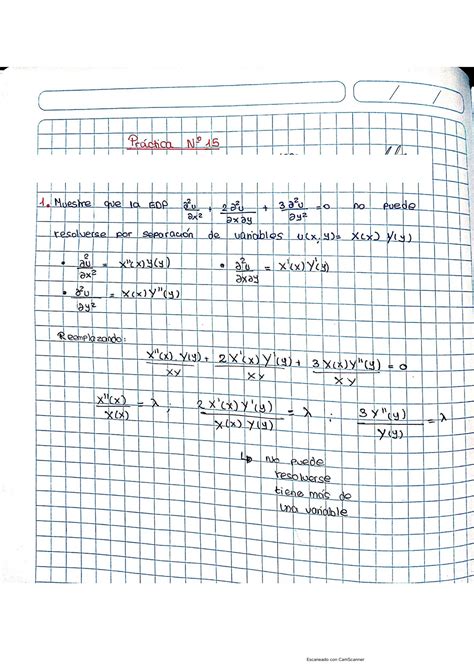 Práctica Nº 15
1. Muestre que la EDP ∂²u/∂x² + 2∂²u/∂x∂y + 3∂²u/∂y² = 0 no puede
resolverse por separación de variables u(x,y) = X(x) Y(y)
• ∂²u/∂x² = X''(x)Y(y) • ∂²u/∂x∂y = X'(x) Y'(y)
• ∂²u/∂y² = X(x) Y''(y)
Reemplazando:
X''(x) Y(y)/XY + 2 X'(x) Y'(y)/XY + 3 X(x) Y''(y)/XY = 0
X''(x)/X(x) = λ ; 2 X'(x) Y'(y)/X(x) Y(y) = λ ; 3 Y''(y)/Y(y) = λ
↳ No puede
resolverse
tiene más de
una variable
Escaneado con CamScanner